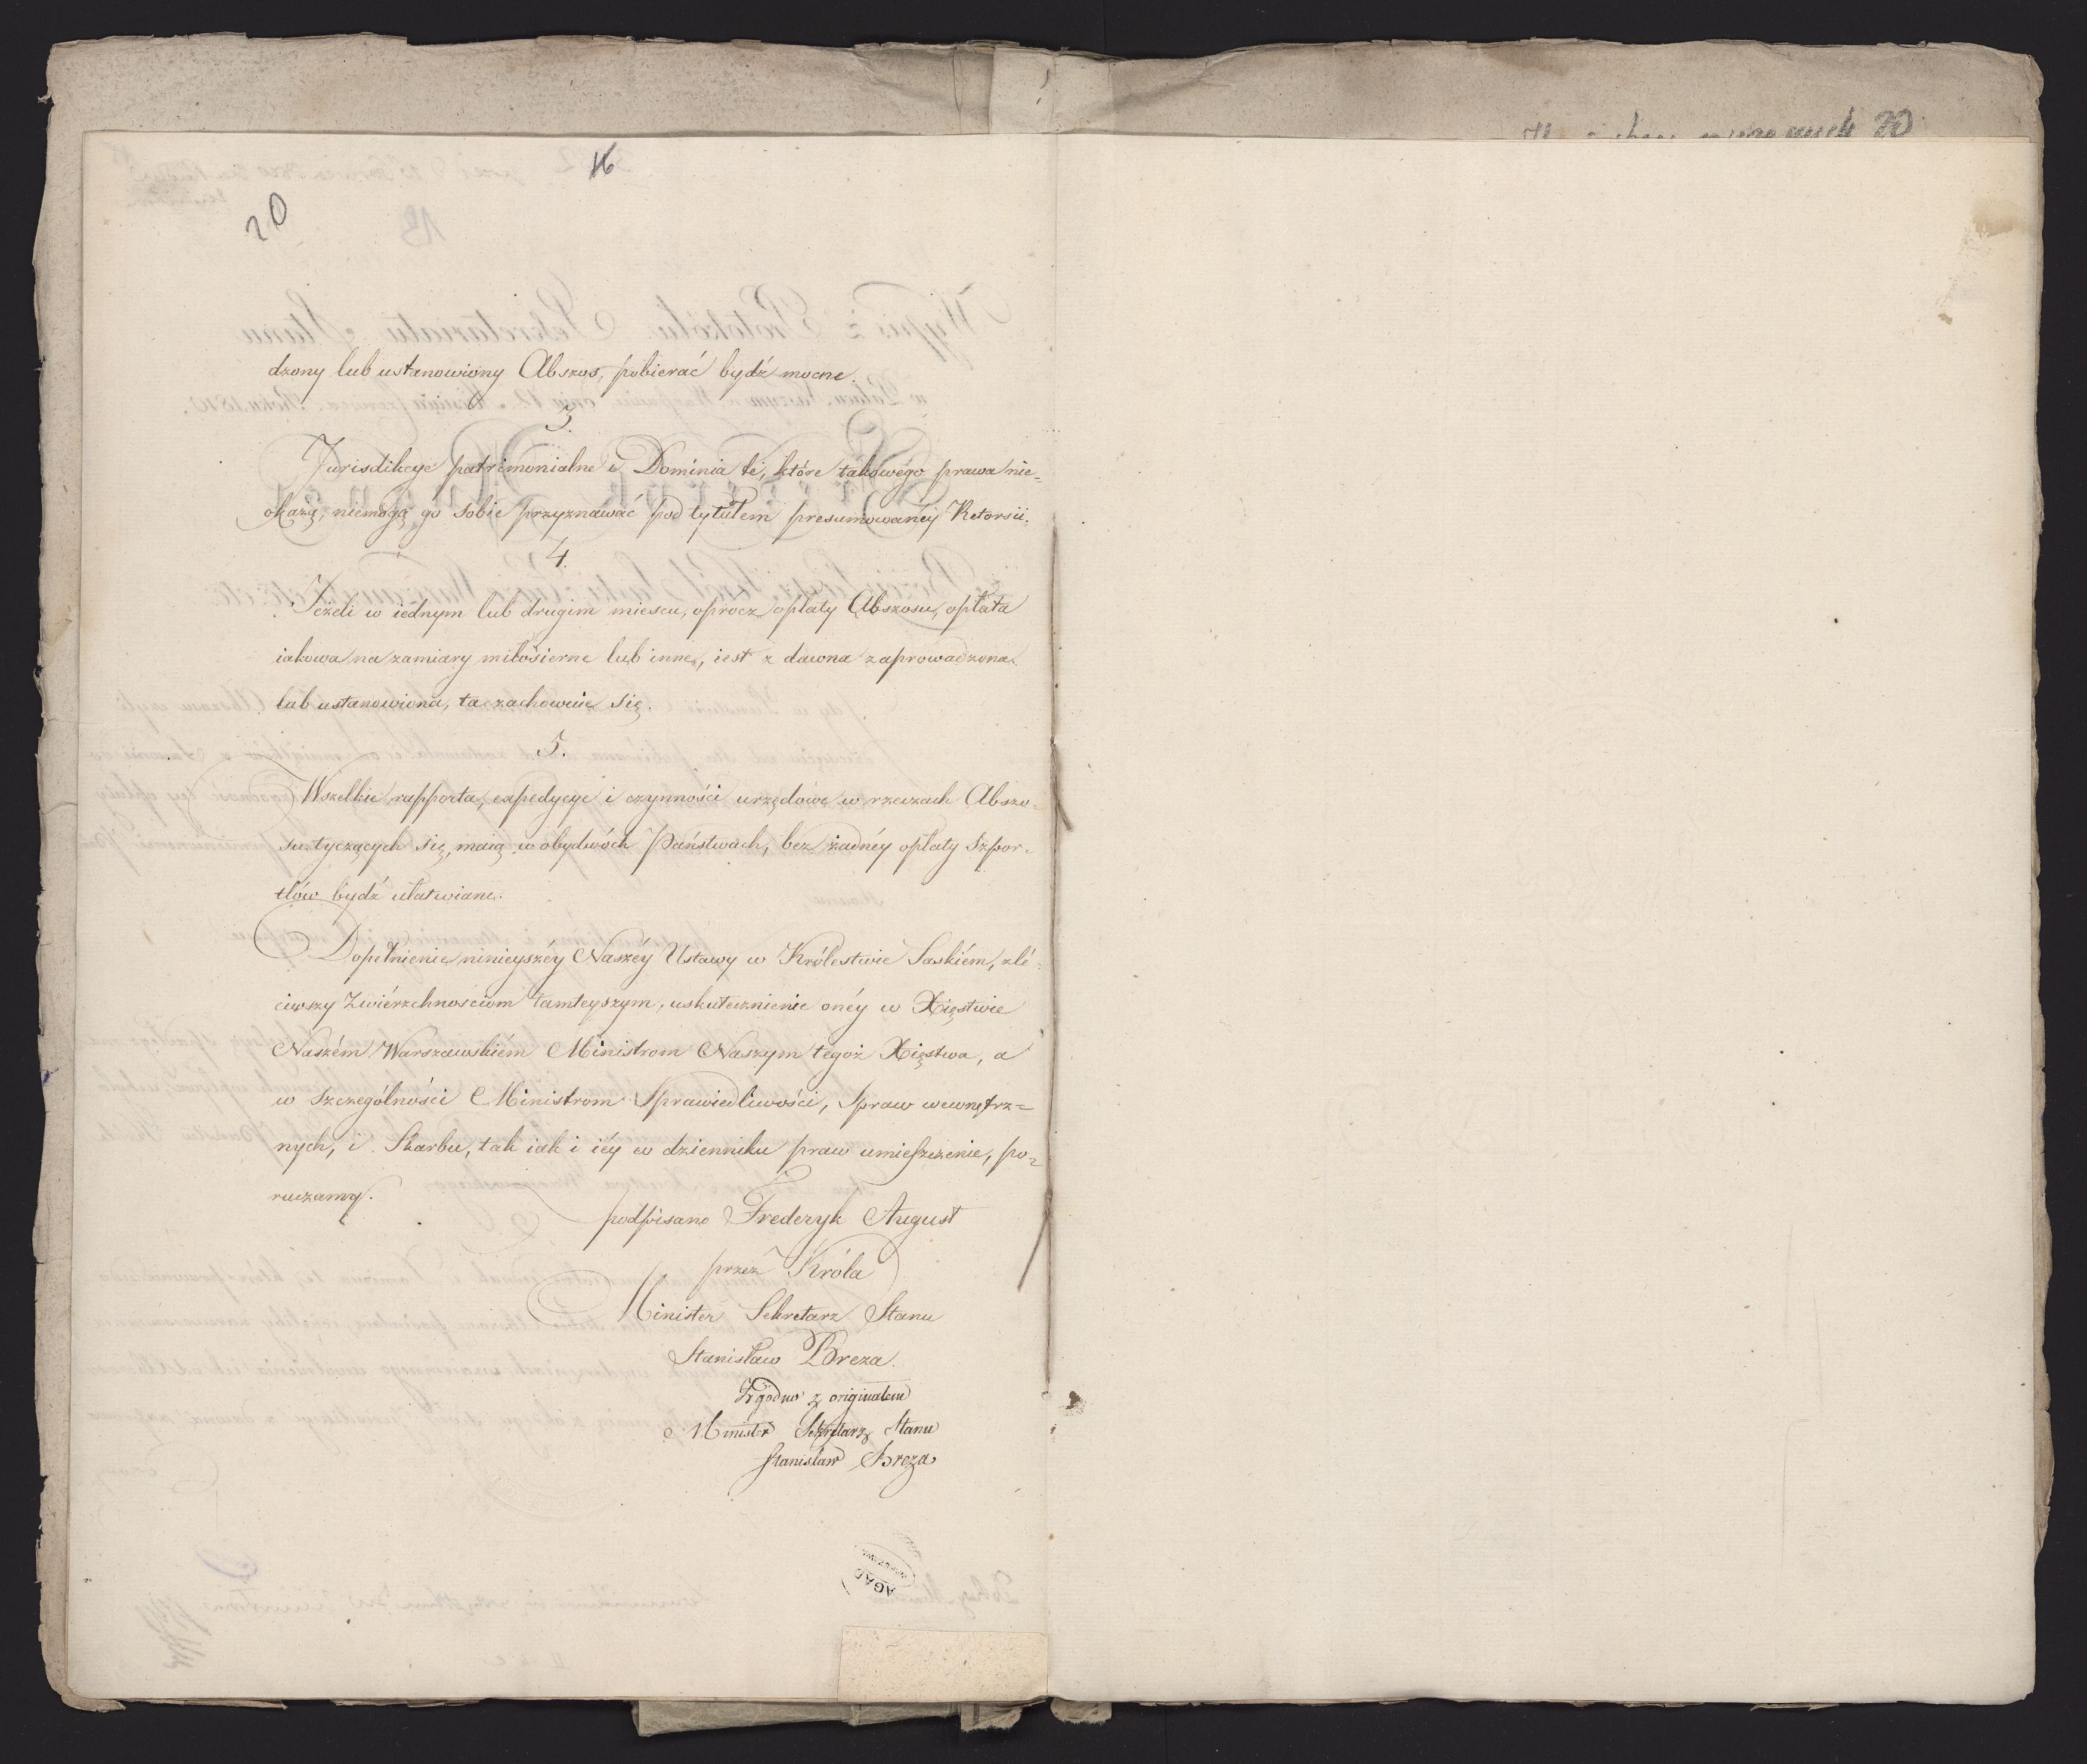 16
20
dzony lub ustanowiony Abszos, pobierać bydź mocne.
3.
Jurisdikcye patrimonialne i Dominia te, które takowego prawa nie-
okażą, niemogą go sobie przyznawać pod tytułem presumowanéy Retorsii.
4.
Jeżeli w iednym lub drugim miescu, oprocz opłaty Abszosu, opłata
iakowa na zamiary miłosierne lub inne, iest z dawna zaprowadzona
lub ustanowiona, ta zachowuie się.
5.
Wszelkie rapporta, expedycye i czynności urzędowe w rzeczach Abszo-
su tyczących się, maią w obydwóch Państwach, bez żadnéy opłaty Szpor-
tlów bydź ułatwiane.
Dopełnienie ninieyszéy Naszéy Ustawy w Królestwie Saskiém, zlé-
ciwszy Zwiérzchnościom tamteyszym, uskutecznienie onéy w Xięstwie
Naszém Warszawskiém Ministrom Naszym tegoż Xięstwa, a
w szczególności Ministrom Sprawiedliwości, Spraw wewnętrz=
nych, i Skarbu, tak iak i iéy w dzienniku praw umieszczenie, po-
ruczamy.
podpisano Frederyk August
przez Króla
Minister Sekretarz Stanu
Stanisław Breza.
Zgodno z originałem
Minister Sekretarz Stanu
Stanisław Breza
AGAD